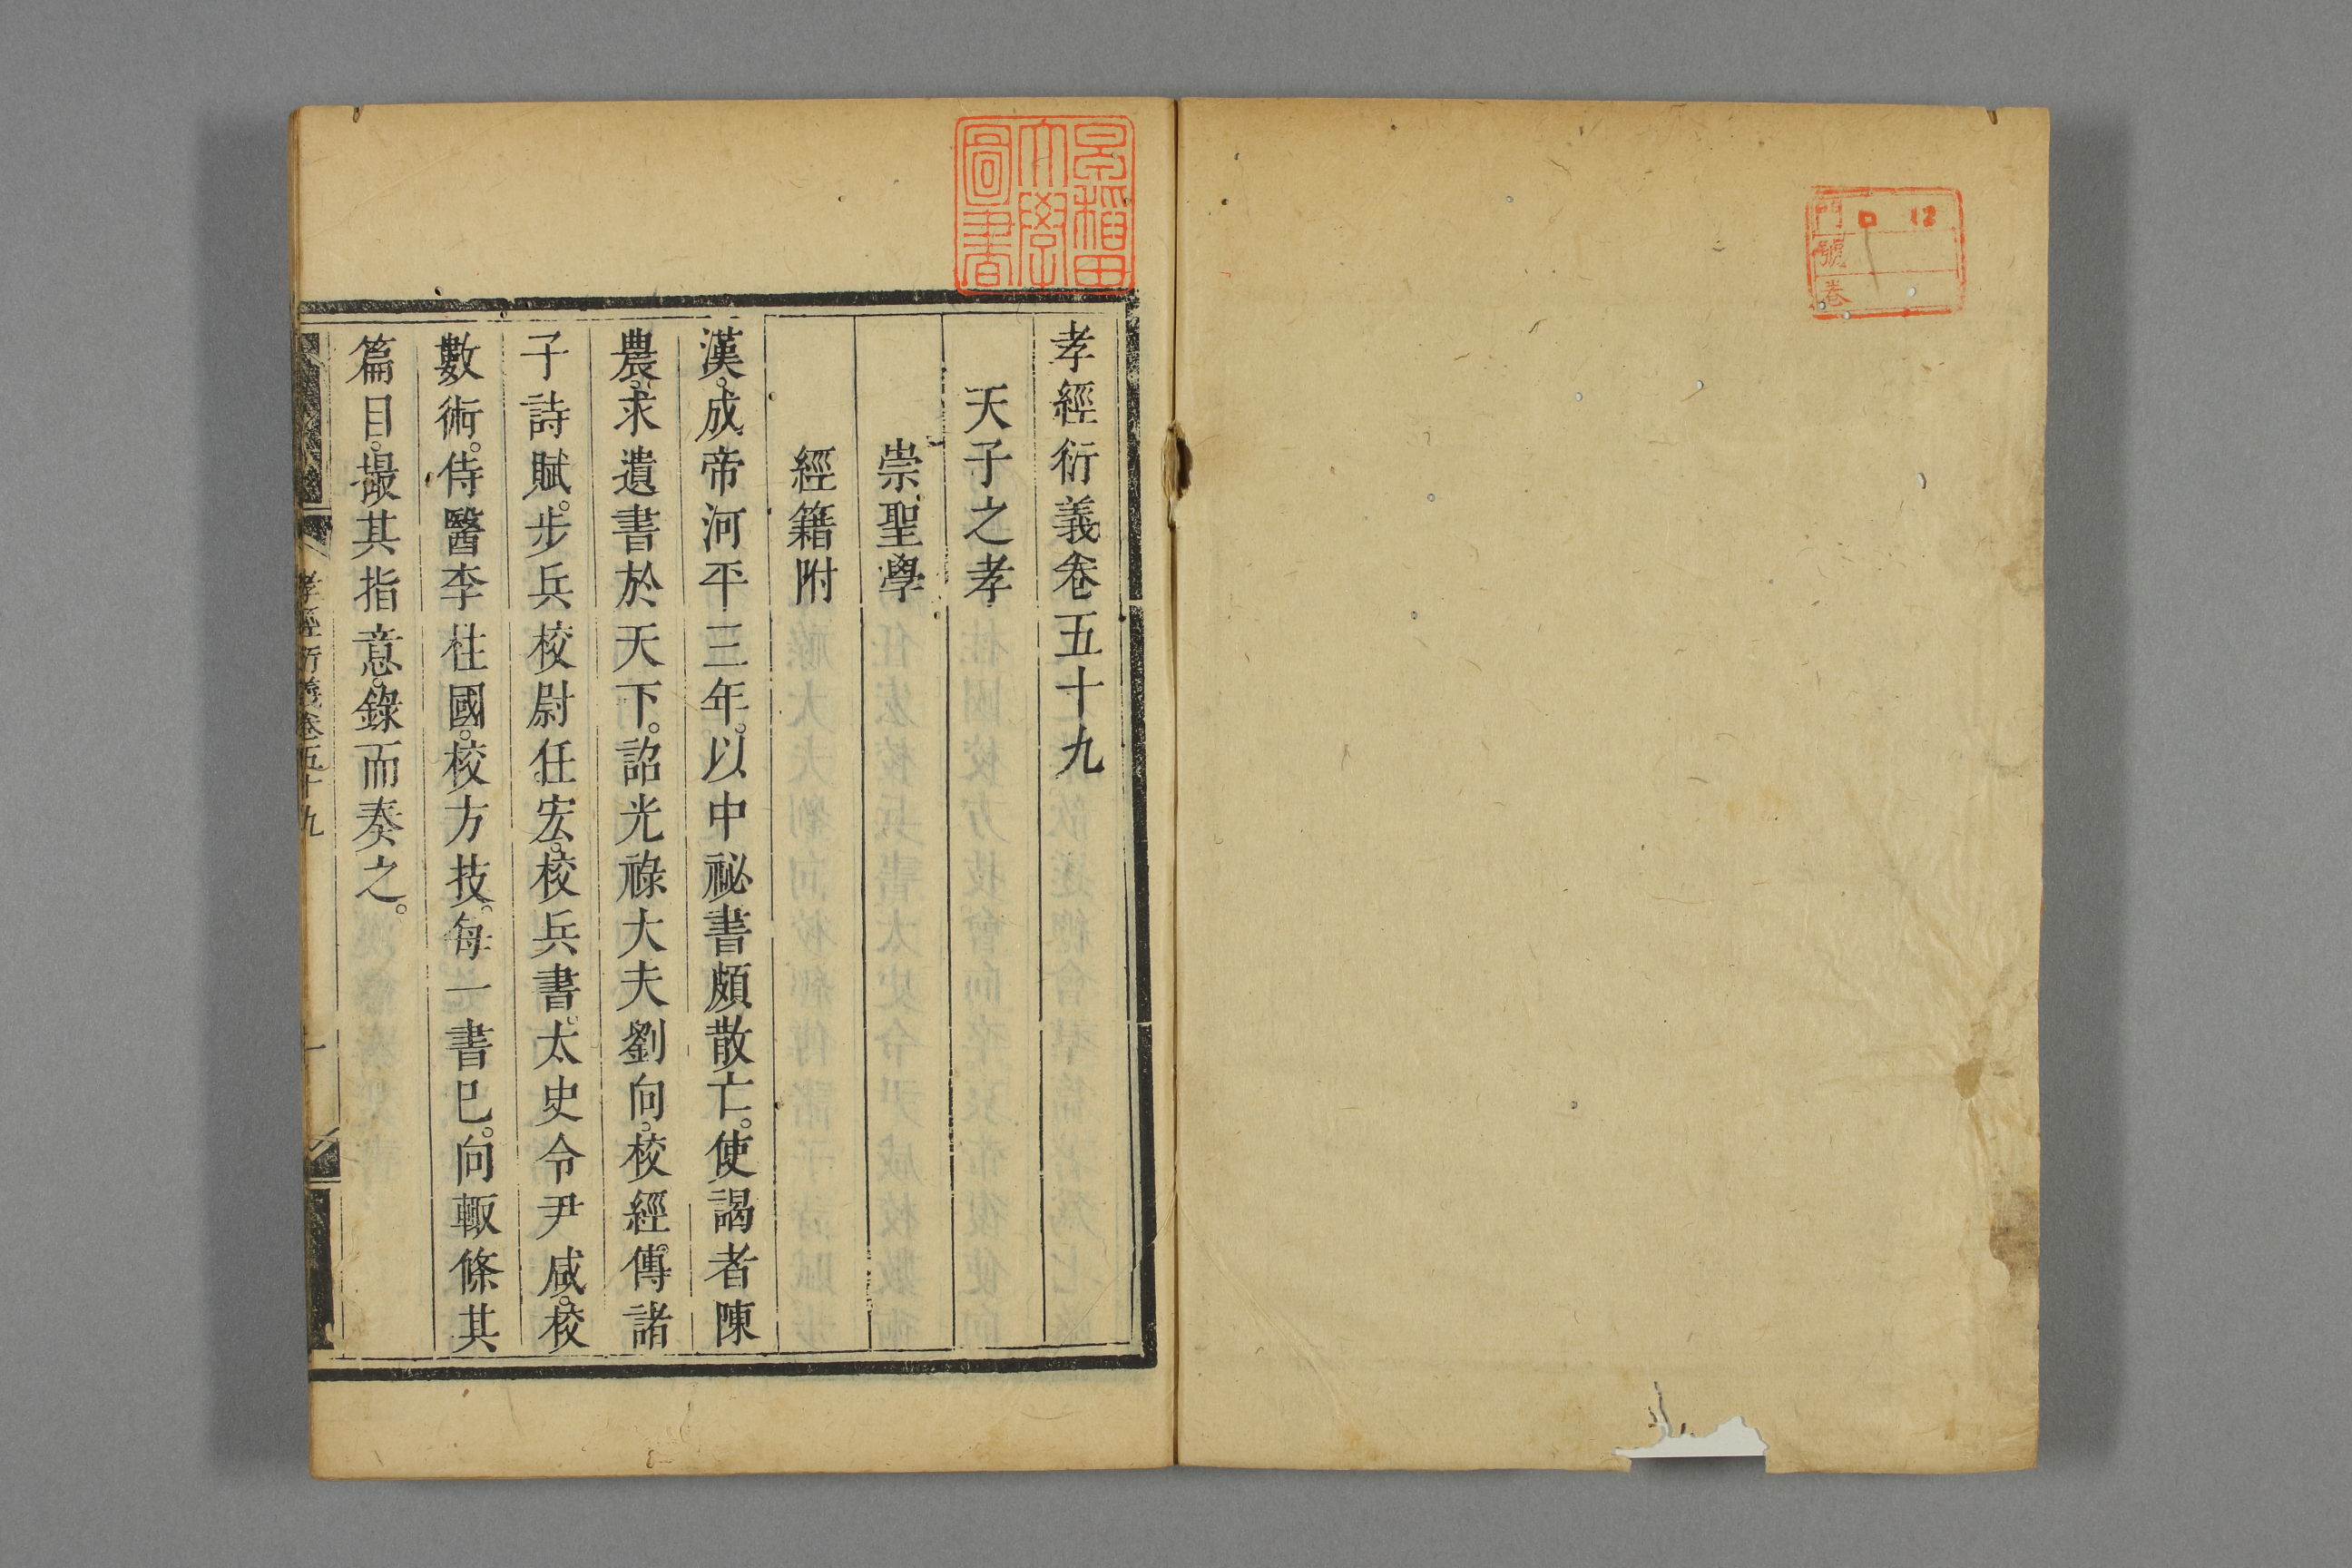 門 口 12
號
卷
早稲田
大學
圖書
孝經衍義卷五十九
天子之孝
崇聖學
經籍附
漢成帝河平三年。以中祕書頗散亡。使謁者陳
農。求遺書於天下。詔光祿大夫劉向。校經傳諸
子詩賦。步兵校尉任宏。校兵書。太史令尹咸。校
數術。侍醫李柱國。校方技。每一書已。向輙條其
篇目。撮其指意。錄而奏之。
孝經衍義卷五十九
一